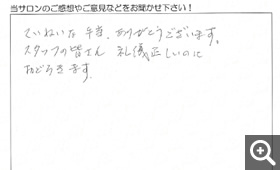 当サロンのご感想やご意見などをお聞かせ下さい！
ていねいな手当、ありがとうございます。
スタッフの皆さん 礼儀正しいのに
おどろきます